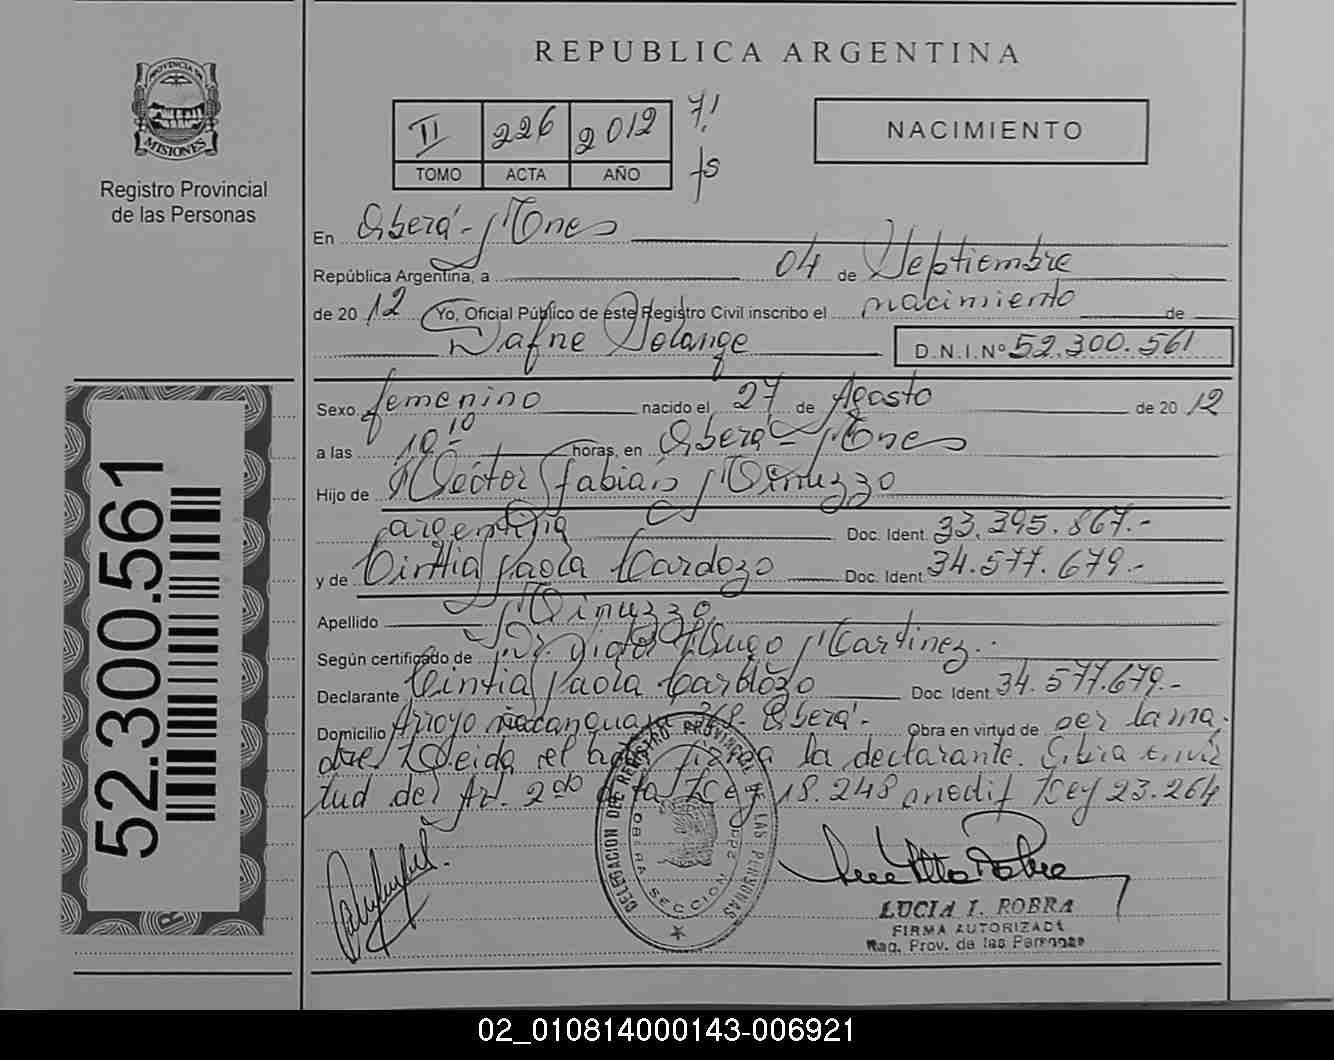 PROVINCIA DE
MISIONES
Registro Provincial
de las Personas
REPUBLICA ARGENTINA
II 226 2012 71
TOMO ACTA AÑO fs
NACIMIENTO
En Oberá - Mnes
República Argentina, a 04 de Septiembre
de 2012 Yo, Oficial Público de este Registro Civil inscribo el nacimiento de
Dafne Solange D.N.I.Nº 52.300.561
Sexo femenino nacido el 27 de Agosto de 2012
a las 10 10 horas, en Oberá - Mnes
Hijo de Héctor Fabián Minuzzo
argentina Doc. Ident. 33.395.867.-
y de Cinthia Paola Cardozo Doc. Ident. 34.577.679.-
Apellido Minuzzo
Según certificado de Dr. Victor Hugo Martinez.
Declarante Cintia Paola Cardozo Doc. Ident. 34.577.679.-
Domicilio Arroyo 368 - Oberá - Obra en virtud de ser la ma-
dre. Leida el acta firma la declarante. Obra en vir
tud del Art. 2do de la Ley 18.248 modif Ley 23.264
52.300.561
DELEGACION DEL REGISTRO PROVINCIAL DE LAS PERSONAS
OBERA SECCION
LUCIA I. ROBRA
FIRMA AUTORIZADA
Reg. Prov. de las Personas
02_010814000143-006921